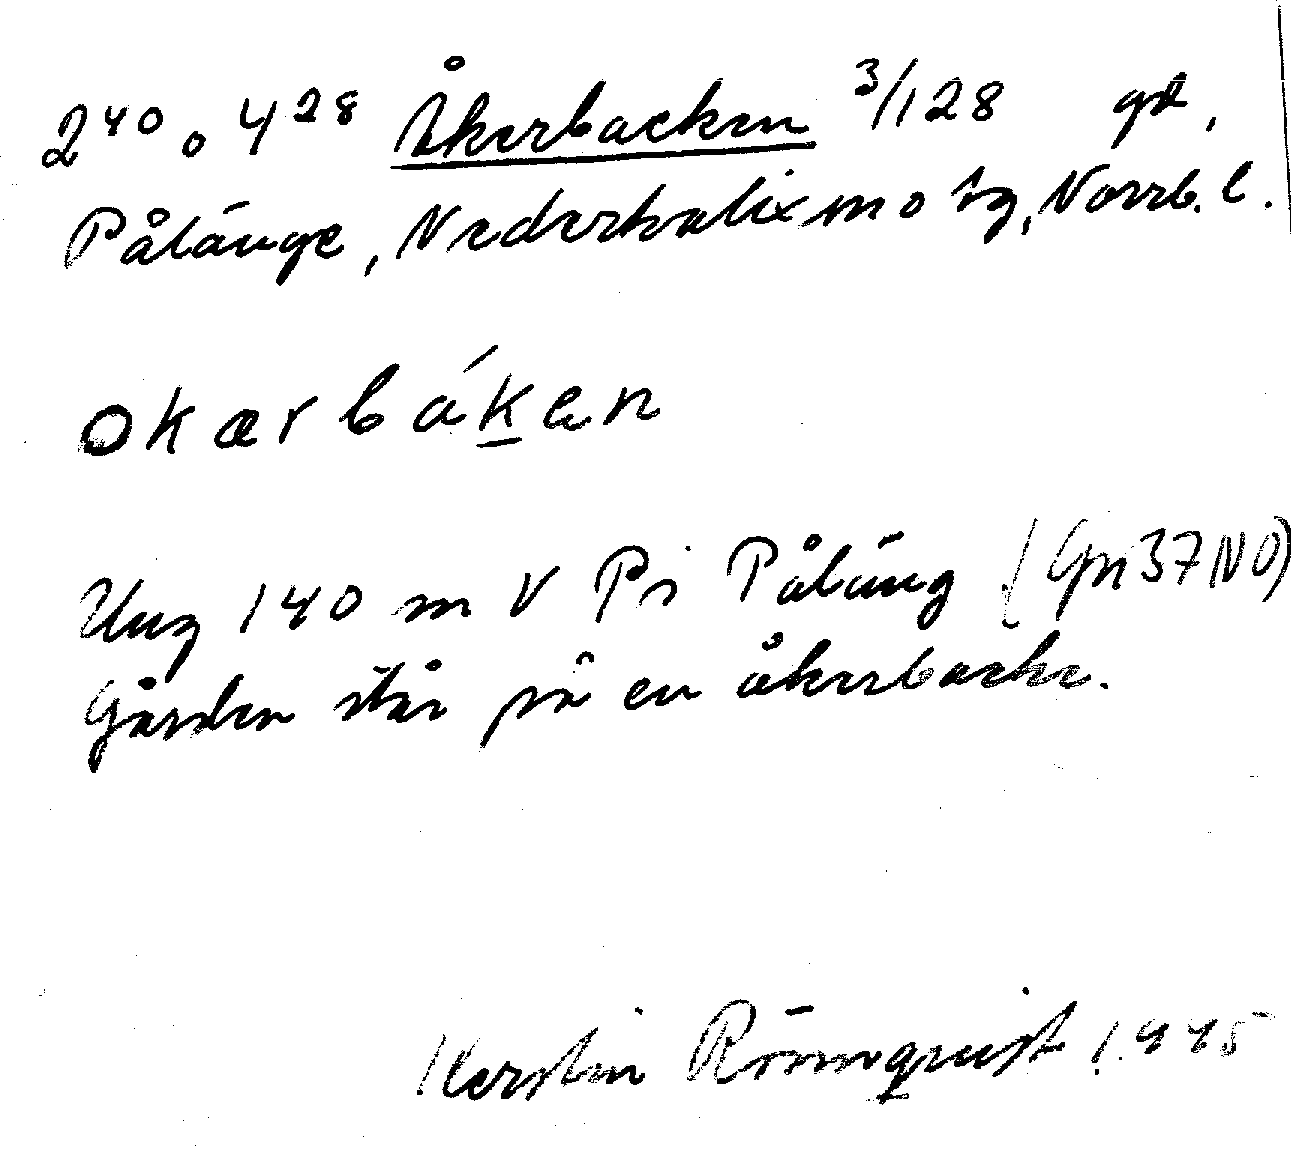 2⁴⁰ o 4²⁸ Åkerbacken ³/128 gd,
Pålänge, Nederkalix sn o tg, Norrb. l.
okærbákan
Ung 140 m V P i Påläng (Gn 37 NO)
Gården står på en åkerbacke.
Kerstin Rönnquist 1945